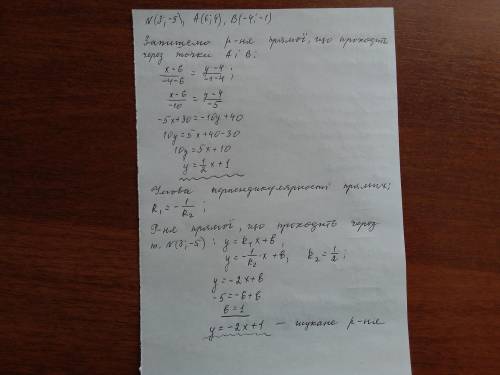 N(3;-5), A(6;4), B(-4;-1)
Запишемо р-ня прямої, що проходить
через точки A і B:
x-6/-4-6 = y-4/-1-4;
x-6/-10 = y-4/-5
-5x+30=-10y+40
10y=5x+40-30
10y=5x+10
y=1/2 x+1
Умова перпендикулярності прямих:
k₁=-1/k₂;
Р-ня прямої, що проходить через
т. N(3;-5): y=k₁x+b,
y=-1/k₂·x+b, k₂=1/2;
y=-2x+b
-5=-6+b
b=1
y=-2x+1 — шукане р-ня